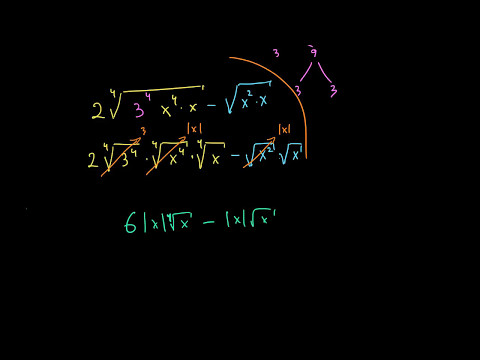 3 9
3 3
2 ∜(3⁴ x⁴ · x) − √(x² · x)
3 |x| |x|
2 ∜3⁴ · ∜x⁴ · ∜x − √x² · √x
6|x|∜x − |x|√x